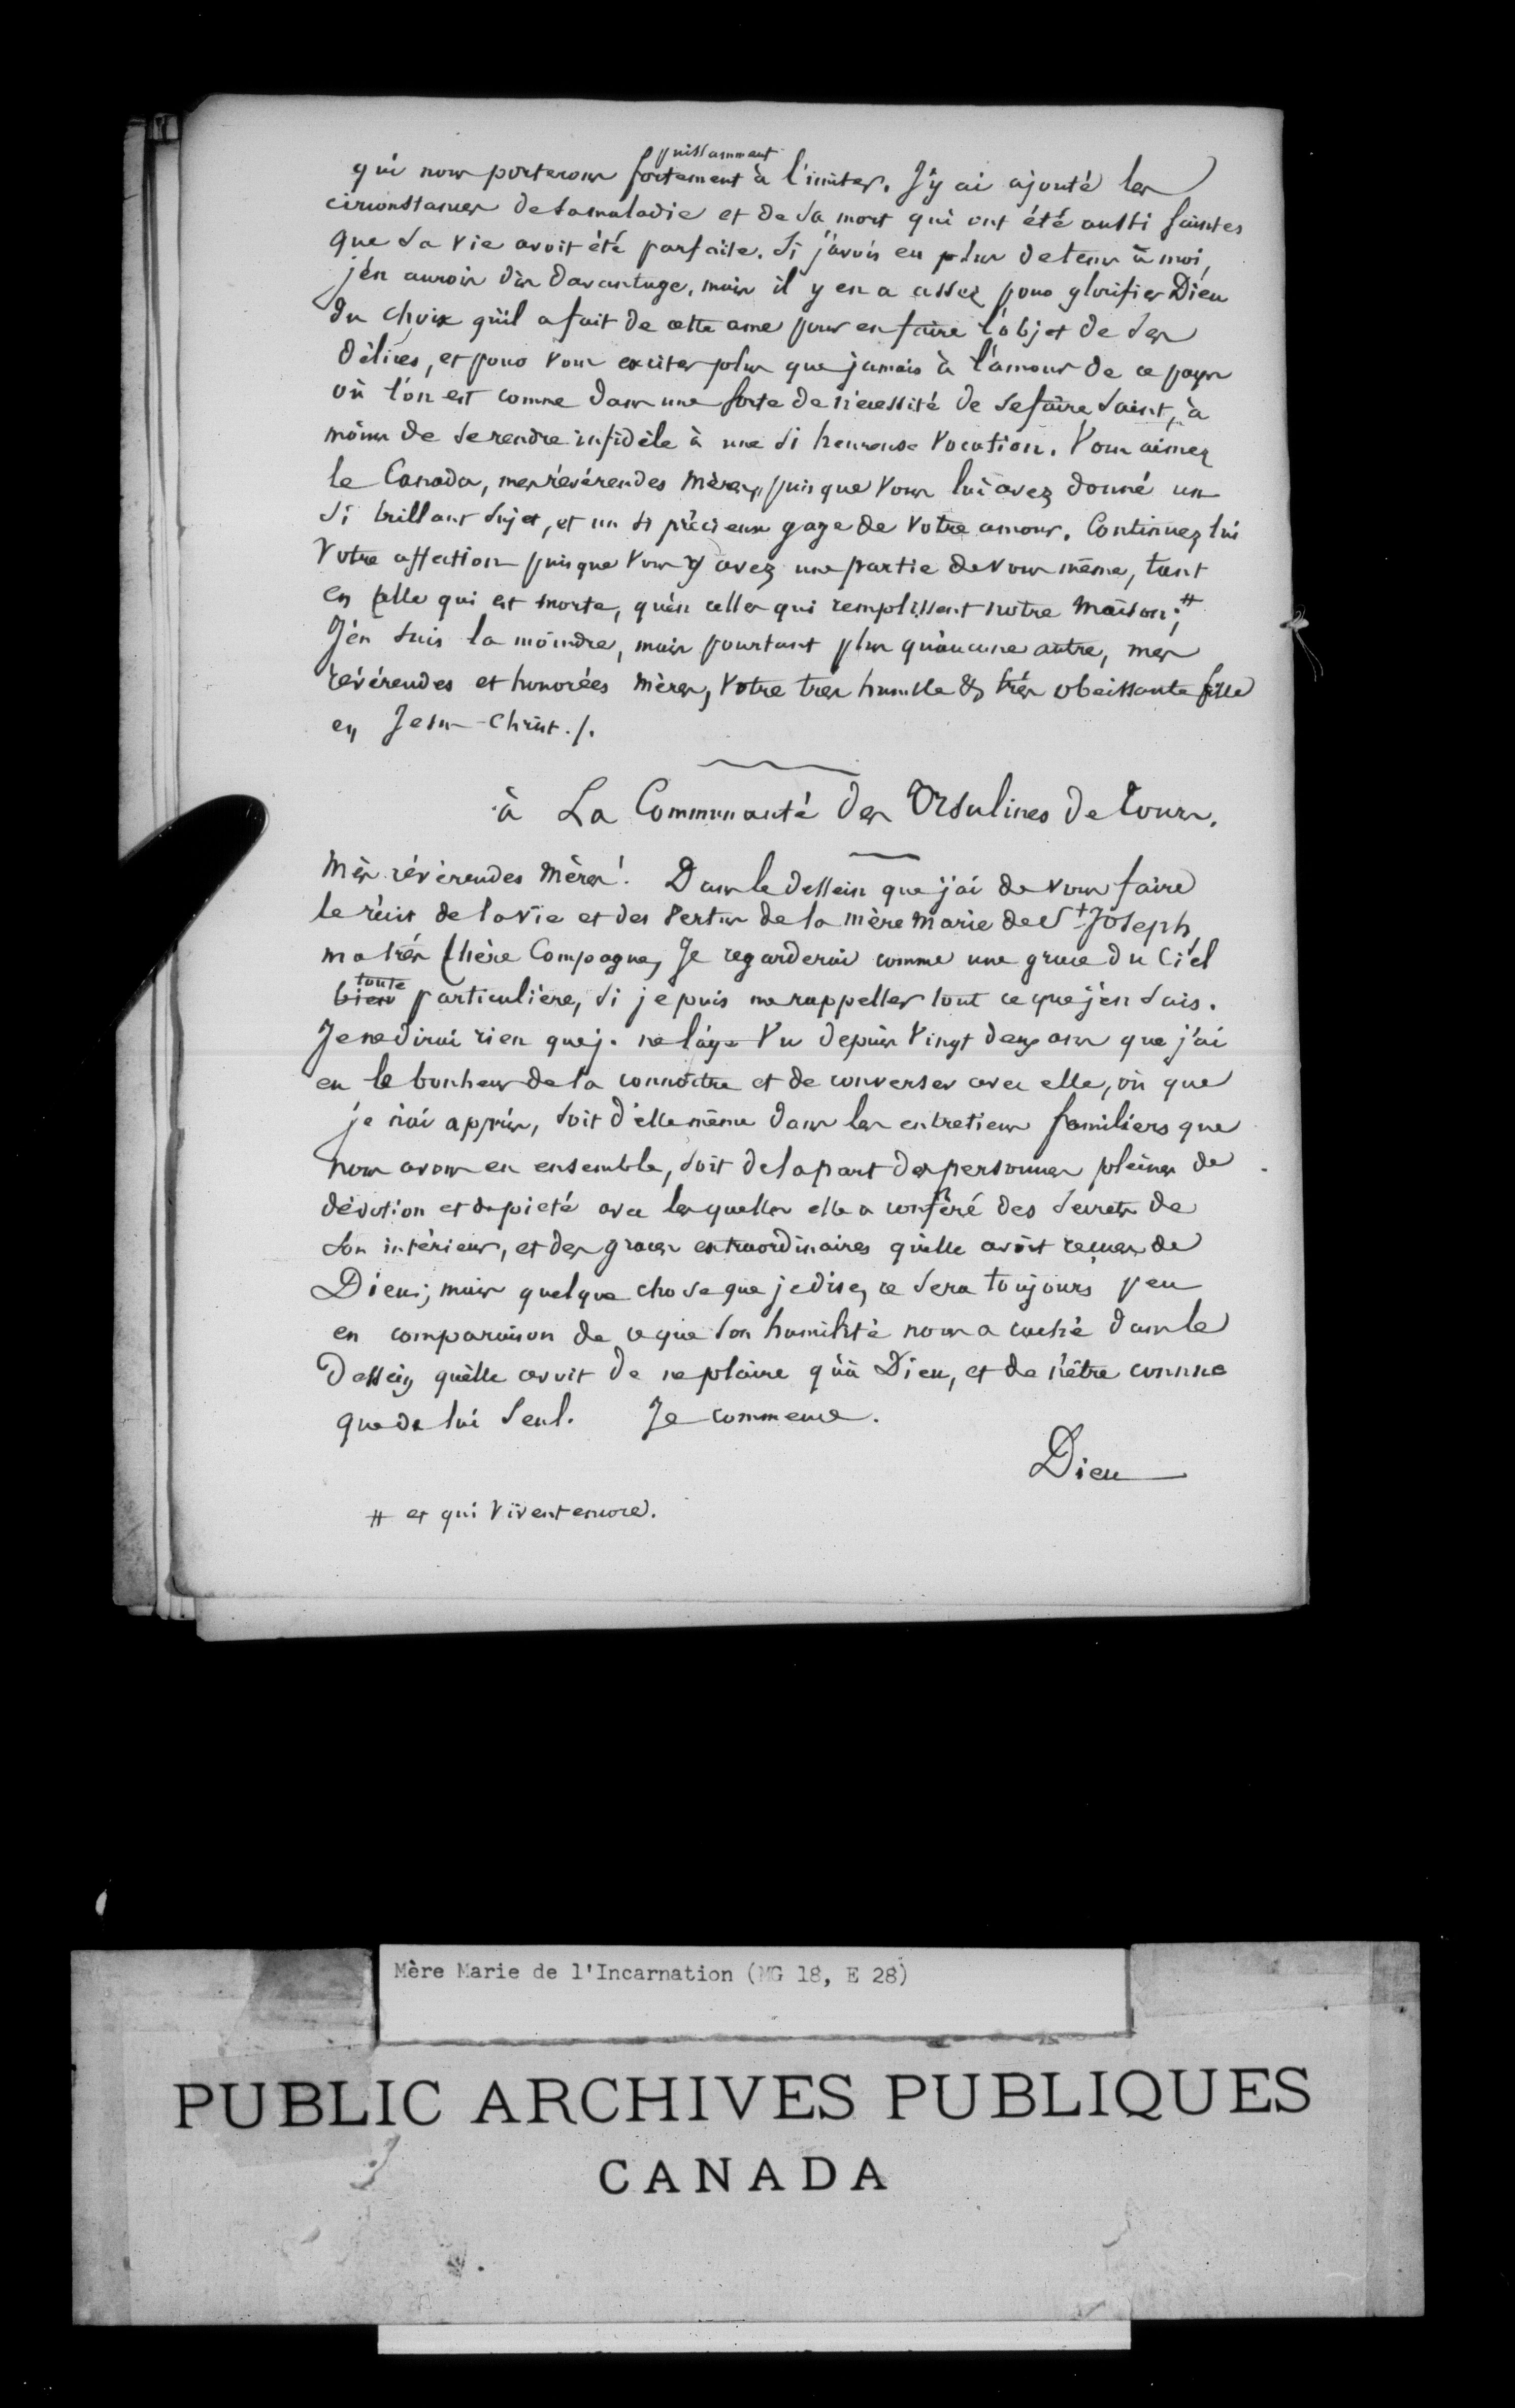 puissamment
qui nous porterons fortement à l'imiter. J'y ai ajouté les
circonstances de sa maladie et de sa mort qui ont été aussi saintes
que sa vie avoit été parfaite. Si j'avois eu plus de tems à moi,
j'en aurois dis davantage, mais il y en a assez pour glorifier Dieu
du choix qu'il a fait de cette ame pour en faire l'objet de ses
délices, et pour vous exciter plus que jamais à l'amour de ce pays
où l'on est comme dans une sorte de nécessité de se faire saint, à
moins de se rendre infidèle à une si heureuse vocation. Vous aimez
le Canada, mes révérendes mères, puisque vous lui avez donné un
si brillant sujet, et un si précieux gage de votre amour. Continuez lui
votre affection puisque vous y avez une partie de vous même, tant
en celle qui est morte, qu'en celles qui remplissent notre maison; #
J'en suis la moindre, mais pourtant plus qu'aucune autre, mes
révérendes et honorées mères, votre très humble & très obeissante fille
en Jesus-Christ ./.
à La Communauté des Ursulines de tours.
Mes révérendes Mères! Dans le dessein que j'ai de vous faire
le récit de la vie et des vertus de la mère marie de St Joseph
ma très chère Compagne, Je regarderai comme une grace du Ciel
toute
bien particulière, si je puis me rappeller tout ce que j'en sais.
Je ne dirai rien que je ne l'aye vu depuis vingt deux ans que j'ai
eu le bonheur de la connoître et de converser avec elle, où que
je n'ai appris, soit d'elle même dans les entretiens familiers que
nous avons eu ensemble, soit de la part des personnes pleines de
dévotion et de pieté avec lesquelles elle a conféré des secrets de
son intérieur, et des graces extraordinaires qu'elle avoit reçues de
Dieu; mais quelque chose que je dise, ce sera toujours peu
en comparaison de ce que son humilité nous a caché dans le
dessein qu'elle avoit de ne plaire qu'à Dieu, et de n'être connue
que de lui seul. Je commence.
Dieu
# et qui vivent encore.
Mère Marie de l'Incarnation (MG 18, E 28)
PUBLIC ARCHIVES PUBLIQUES
CANADA